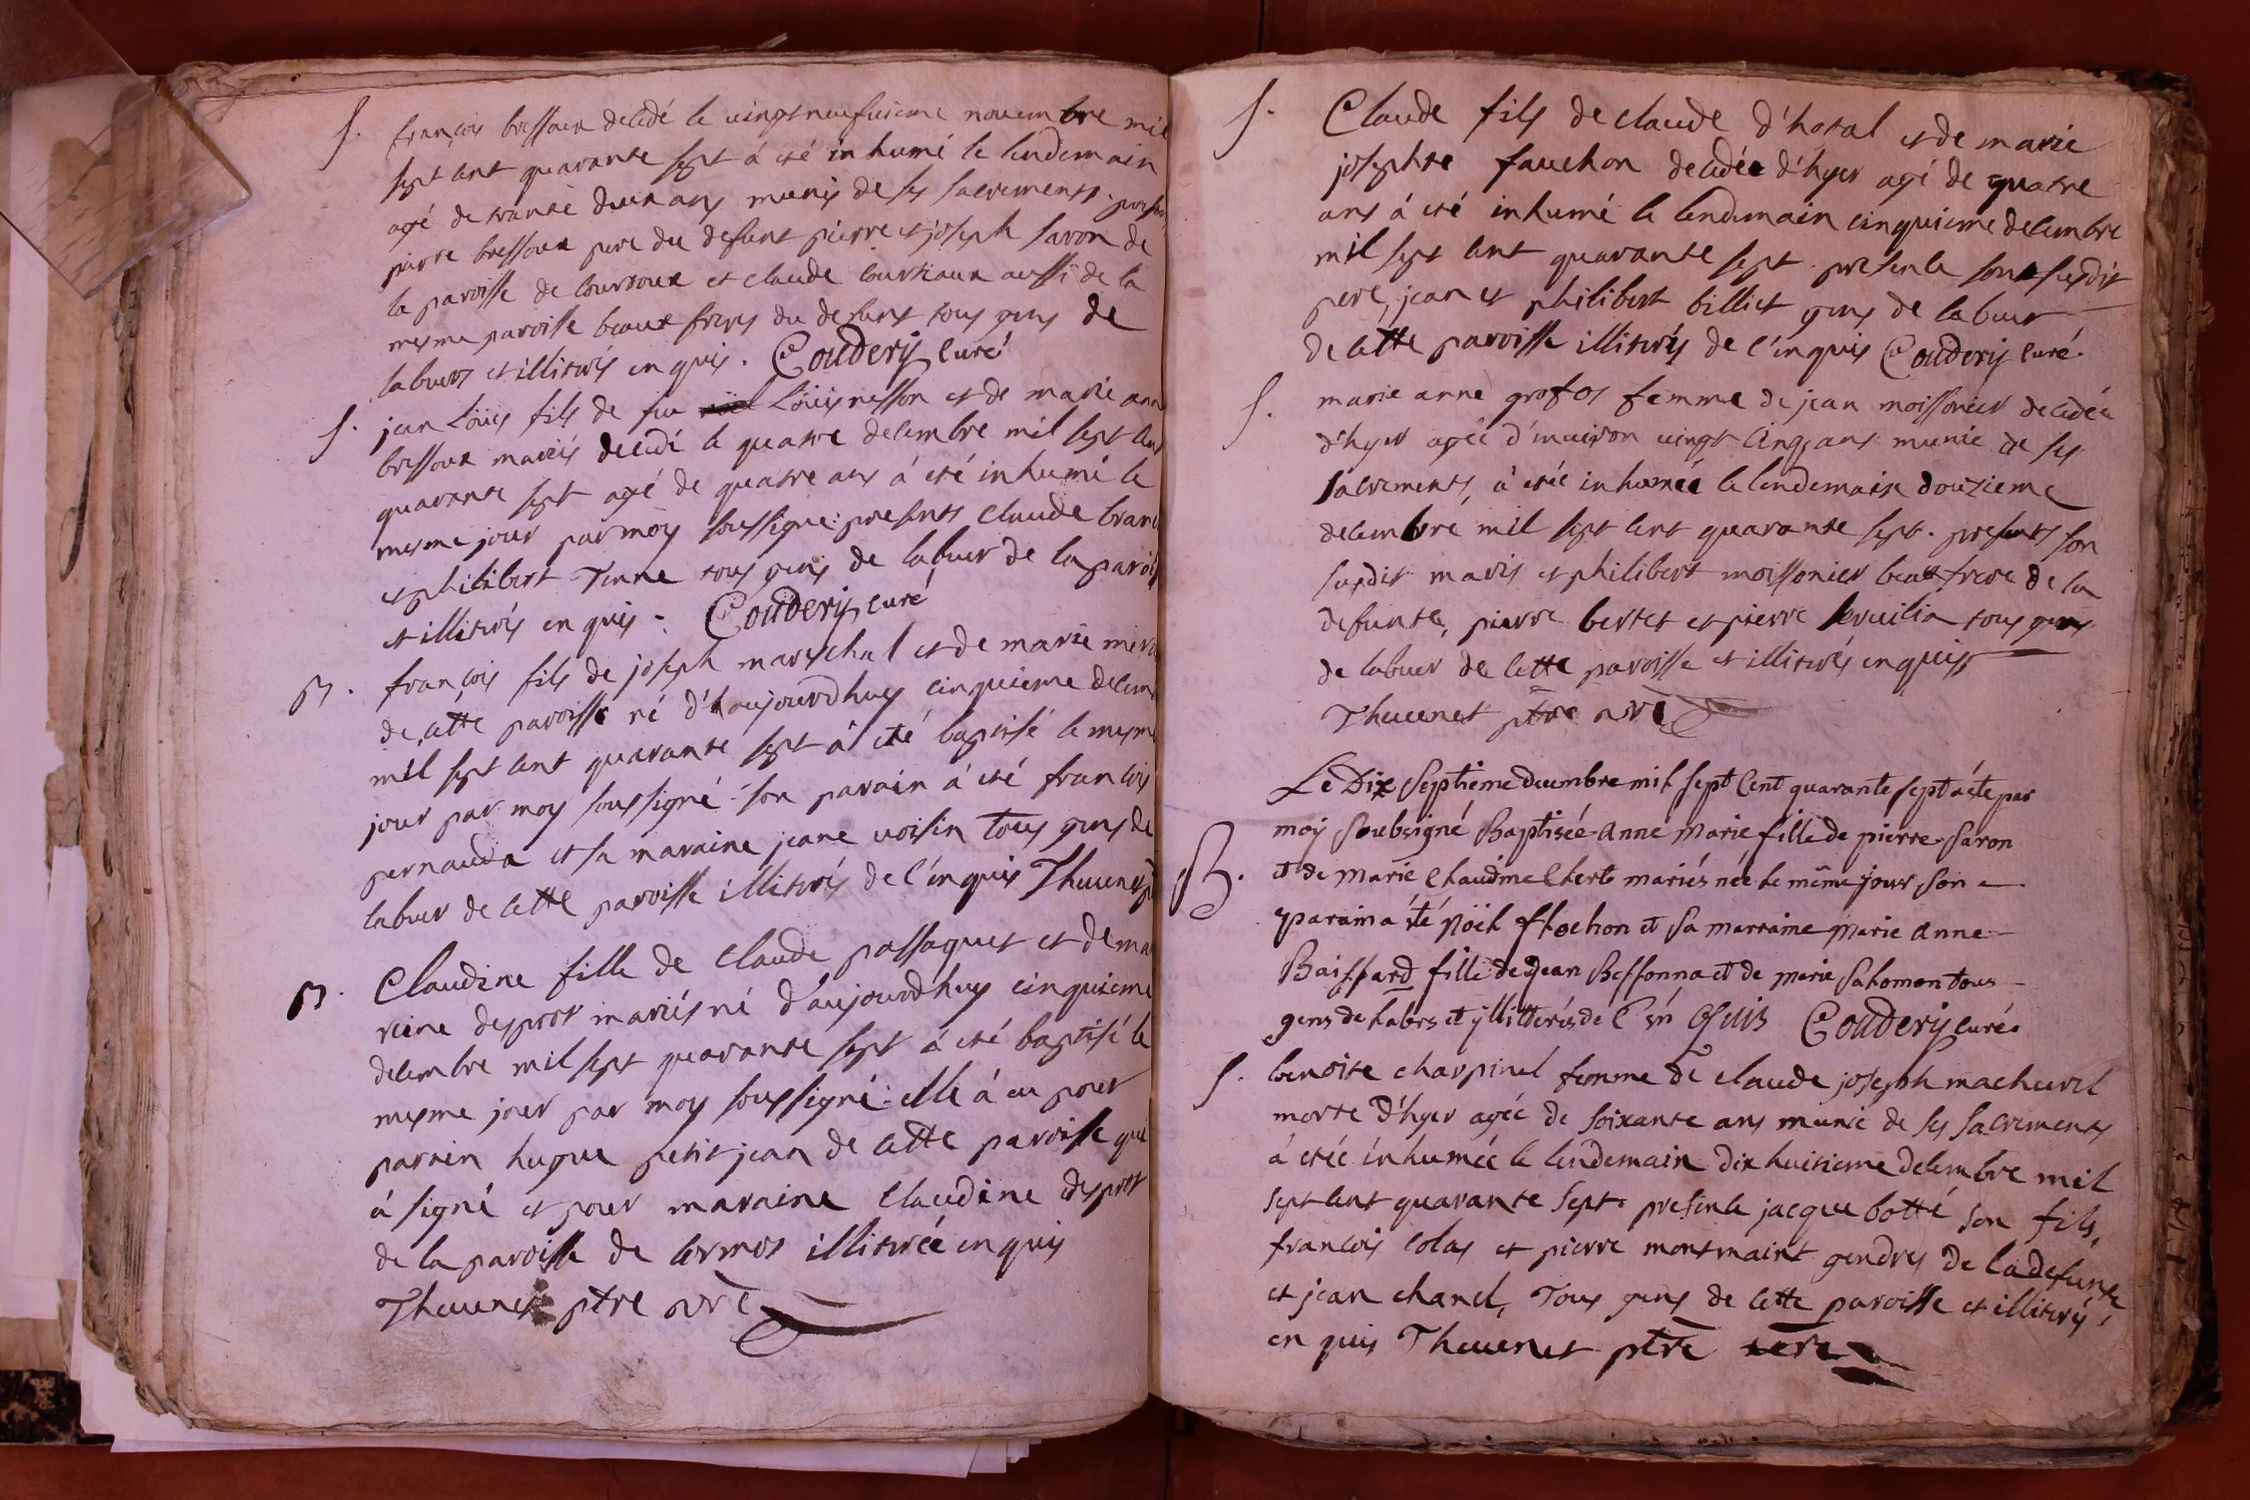 S. françois bressoux decedé le vingt neufuieme novembre mil
sept cent quarante sept á eté inhumé le lendemain
agé de trante deux ans munis de ses sacrements
pierre bressoux pere du defunt pierre et joseph savon de
la paroisse de courtoux et claude courtiaux aussi de la
mesme paroisse beaux freres du defunt tous gens de
labeurs et illiterés enquis. Couderij curé
S. jean Loüis fils de feu Loüis nesson et de marie ann
bressoux mariés decedé le quatre decembre mil sept cent
quarante sept agé de quatre ans á eté inhumé le
mesme jour par moy soussigné: presents claude
et philibert Tenne tous gens de labeur de la parois
et illiterés enquis. Couderij curé
B. françois fils de joseph mareschal et de marie
de cette paroisse né d'aujourdhuy cinquieme decem
mil sept cent quarante sept á eté baptisé le mesme
jour par moy soussigné son parain á eté françois
pernauda et sa maraine jeane voisin tous gens de
labeur de cette paroisse illiterés de l'enquis Theuenet
B. Claudine fille de claude passaquet et de ma
reine desprot mariés né d'aujourdhuy cinquieme
decembre mil sept quarante sept á eté baptisé le
mesme jour par moy soussigné: elle á eu pour
parrein hugue petit jean de cette paroisse qui
á signé et pour maraine claudine desprot
de la paroisse de cormos illiterée enquis
Theuenet ptre vre
S. Claude fils de claude d'hotal et de marie
josephte fauchon decedée d'hyer agé de quatre
ans á eté inhumé le lendemain cinquieme decembre
mil sept cent quarante sept. presence son susdit
pere, jean et philibert billiet gens de labeur
de cette paroisse illiterés de l'enquis Couderij curé.
S. marie anne grofos femme de jean moissonier decedée
d'hyer agée d'environ vingt cinq ans munie de ses
sacrements, á etée inhumée le lendemain douzieme
decembre mil sept cent quarante sept. presents son
susdit maris et philibert moissonier beau frere de la
defunte, pierre bertet et pierre tous gens
de labeur de cette paroisse et illiterés enquis
Theuenet ptre vre
Le Dix septieme decembre mil sept Cent quarante sept á éte par
moy soubsigné Baptisée Anne Marie fille de pierre Saron
B. et de Marie Claudine Clerte mariés née le même jour son
parain a été Noël flochon et sa marraine Marie Anne
Baissard fille de Jean Bessonna et de Marie Salomon tous
gens de labrs et illitterés de l'en quis Couderij curé.
S. benoite charpinel femme de claude joseph macheurel
morte d'hyer agée de soixante ans munie de ses sacrements
á etée inhumée le lendemain dix huitieme decembre mil
sept cent quarante sept. presence jacque botté son fils,
françois colas et pierre montmaint gendres de la defunte
et jean chanel, Tous gens de cette paroisse et illiterés,
en quis Theuenet ptre